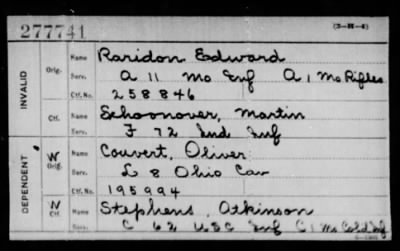 277741
(3-H-4)
INVALID
Orig.
Name Raridon Edward
Serv. A 11 Mo Inf A 1 Mo Rifles
Ctf. No. 258846
Ctf.
Name Schoonover, Martin
Serv. F 72 Ind Inf
DEPENDENT
W Orig.
Name Couvert, Oliver
Serv. L 8 Ohio Cav
Ctf. No. 195994
W Ctf.
Name Stephens, Atkinson
Serv. C 62 USC Inf C 1 Mo Cold Inf